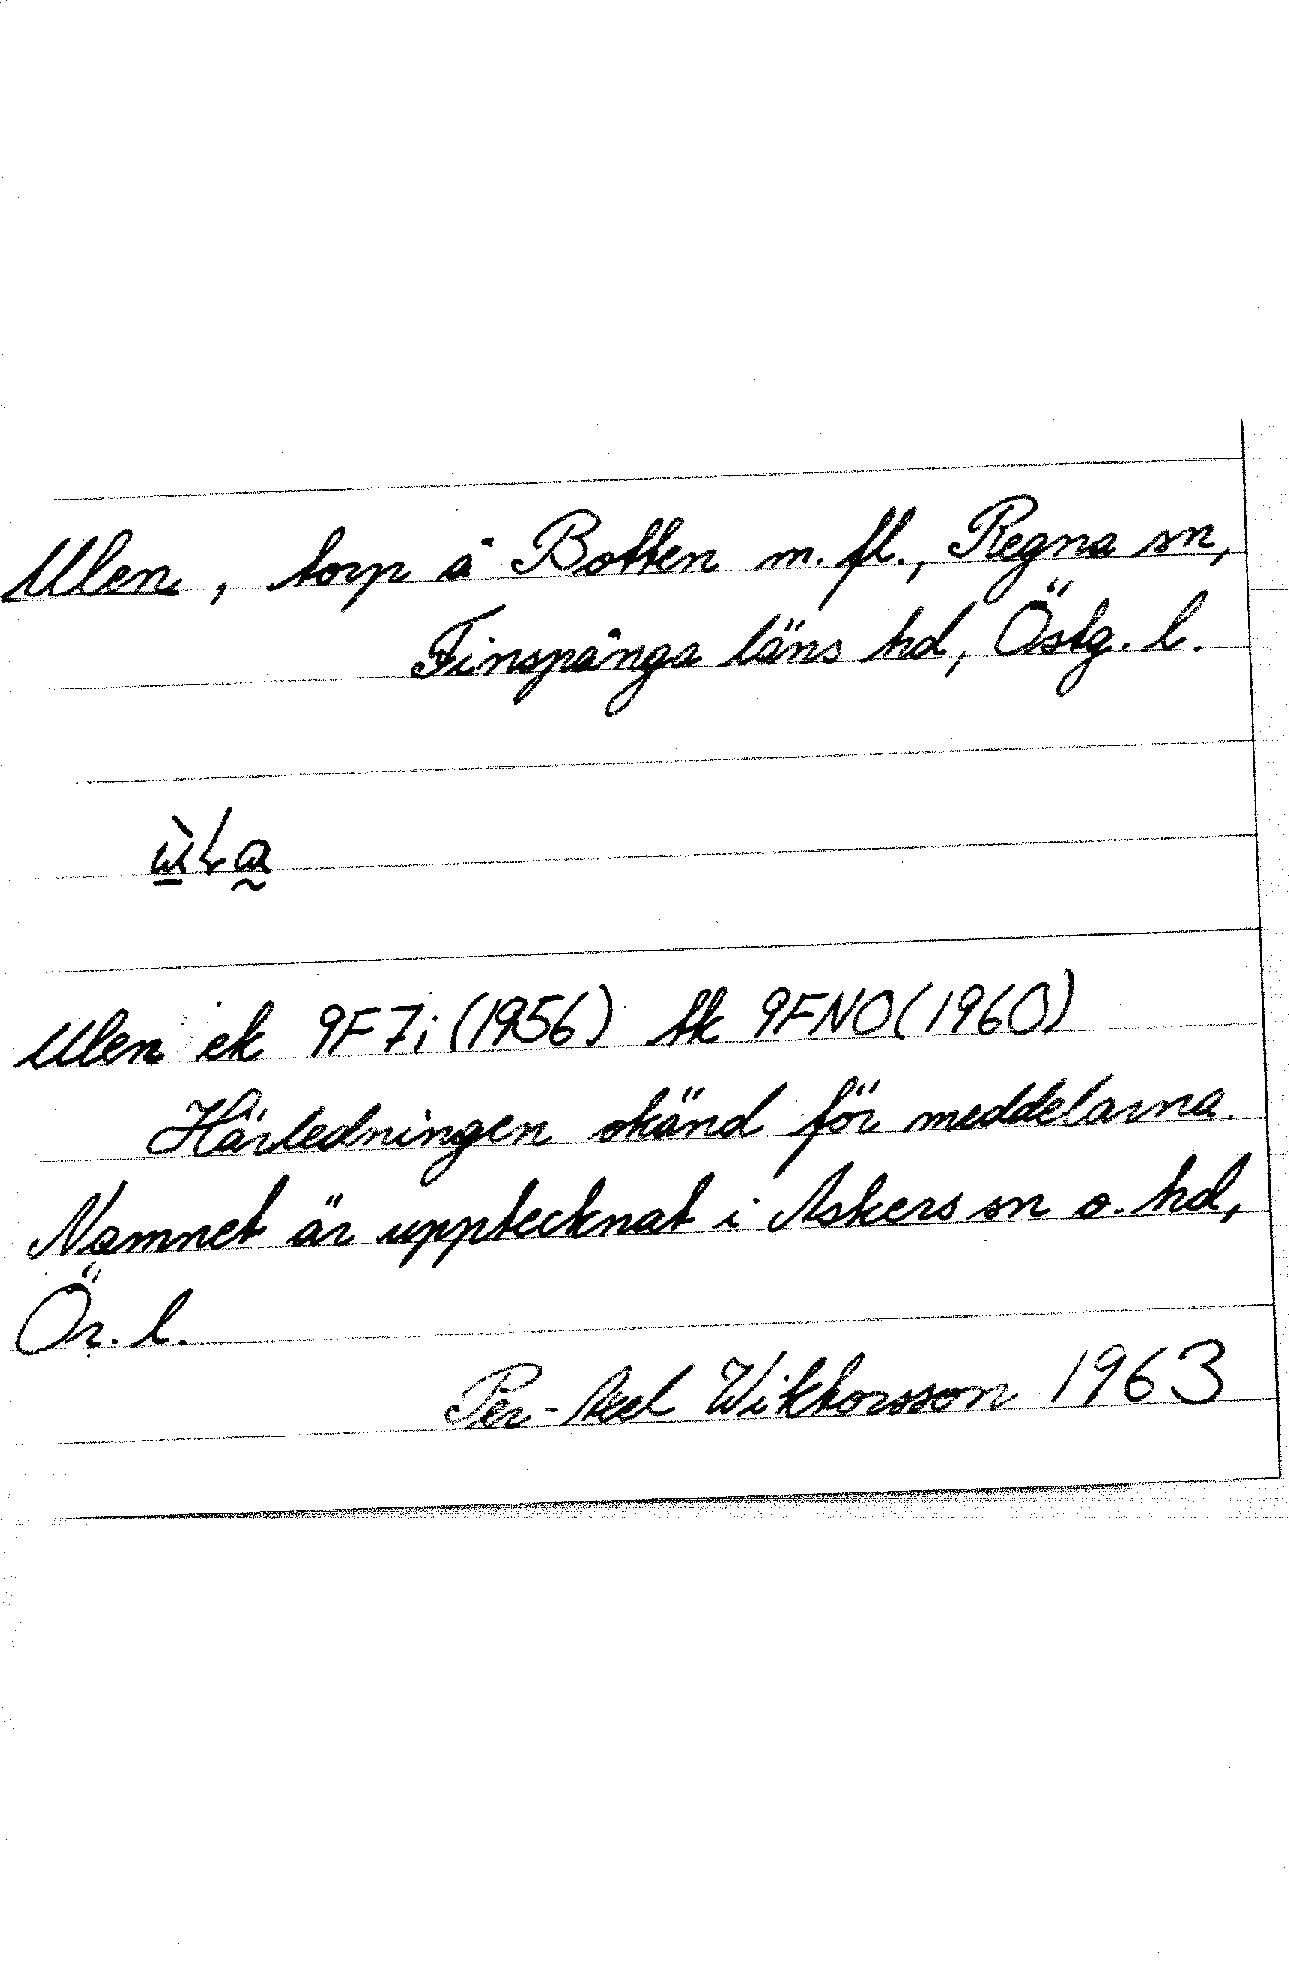 Ulen, torp å Botten m. fl., Regna sn,
Finspånga läns hd, Östg. l.
Ulen ek 9F7i (1956) tk 9FNO (1960)
Härledningen okänd för meddelarna.
Namnet är upptecknat i Askers sn o. hd,
Ör. l.
Per-Axel Wiktorsson 1963